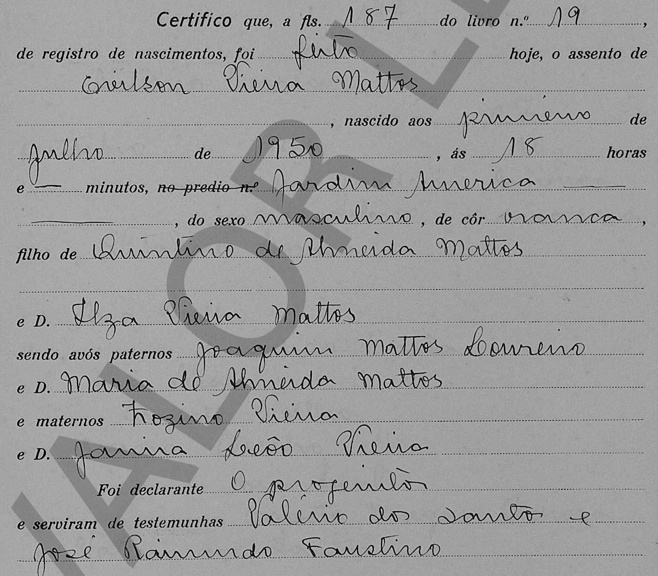 Certifico que, a fls. 187 do livro n.º 19,
de registro de nascimentos, foi feito hoje, o assento de
Vieira Mattos
, nascido aos primeiro de
Julho de 1950, ás 18 horas
e — minutos, no predio n.º Jardim America —
—, do sexo masculino, de côr branca,
filho de Quintino de Almeida Mattos
e D. Ilza Vieira Mattos
sendo avós paternos Joaquim Mattos Loureiro
e D. Maria de Almeida Mattos
e maternos Vieira
e D. Janira Leão Vieira
Foi declarante O progenitôr
e serviram de testemunhas Valério dos Santos e
José Raimundo Faustino
VALOR